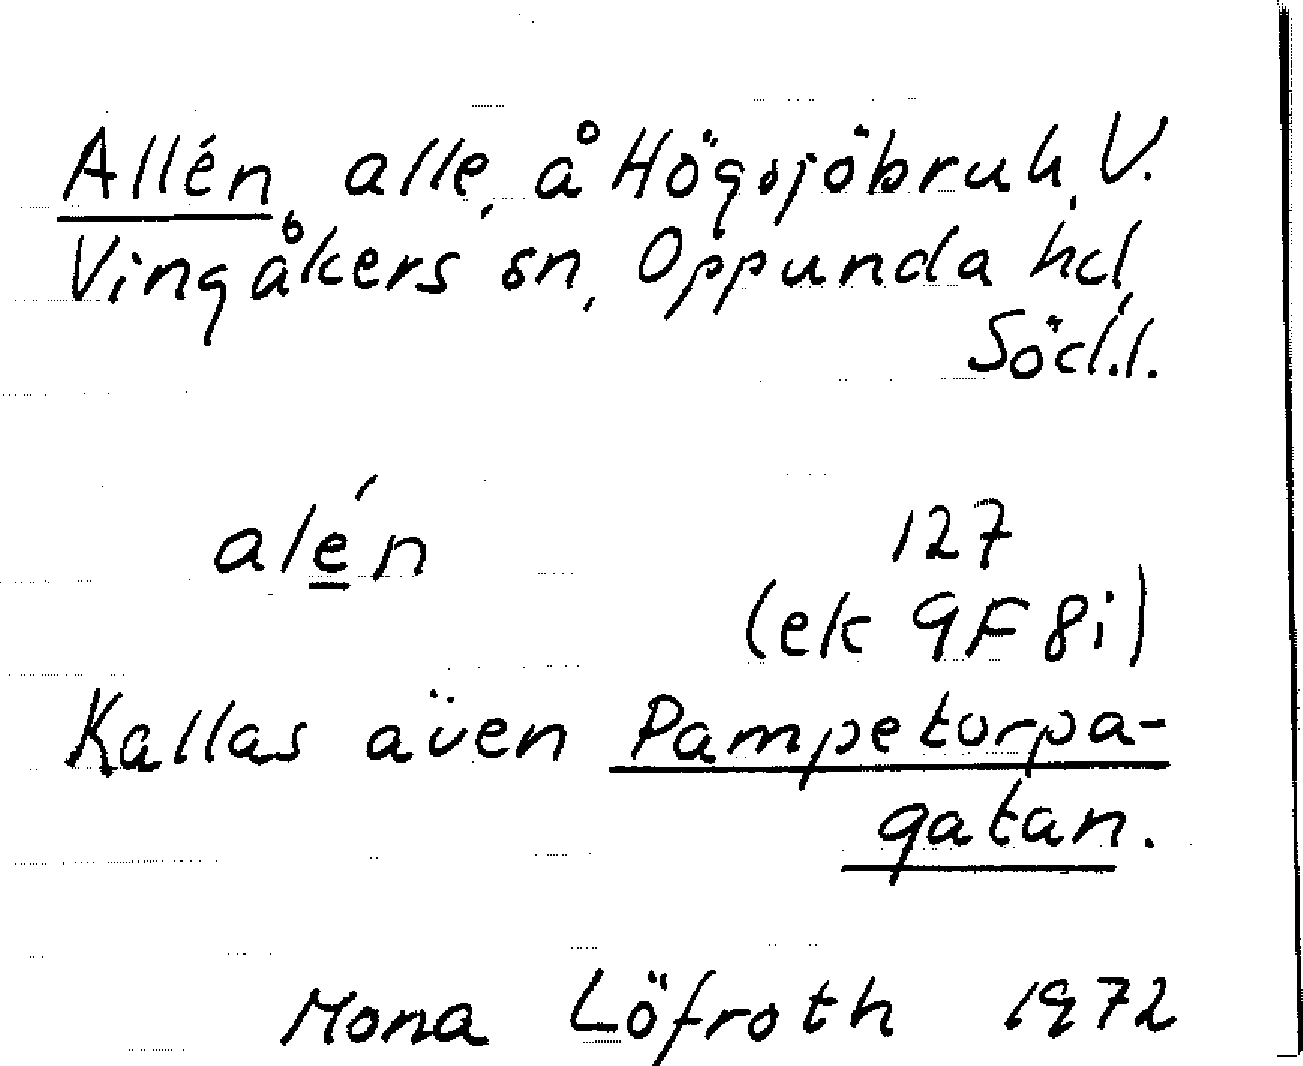 Allén, alle, å Högsjöbruk, V.
Vingåkers sn, Oppunda hd,
Söd.l.
alé́n
127
(ek 9F 8i)
Kallas även Pampetorpa-
gatan.
Mona Löfroth 1972